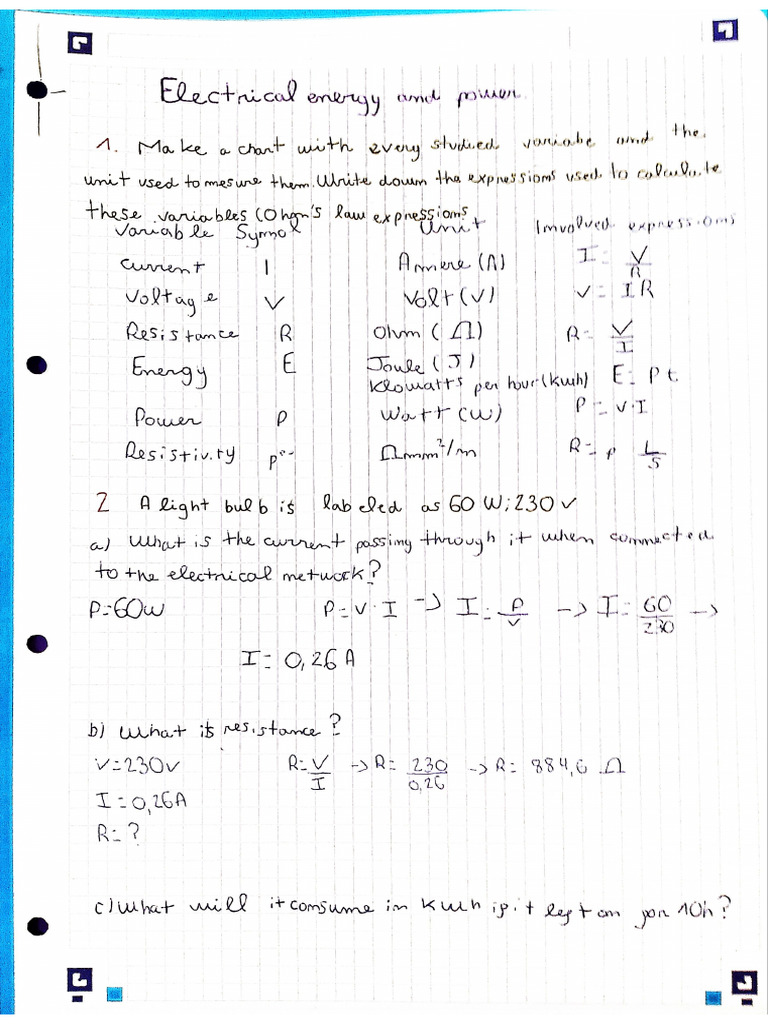 Electrical energy and power.
1. Make a chart with every studied variabe and the
unit used to mesure them. Write down the expressions used to calculate
these variables (Ohgm's law expressions
Variable Symnol Unit Involved expressions
Current I Amere (A) I = V/R
Voltage V Volt (V) V = I R
Resistance R Olvm (Ω) R = V/I
Energy E Joule (J)
Klowatts per hour (kwh) E = P t
Power P Watt (W) P = V·I
Resistivity ρ Ωmm²/m R = ρ L/S
2 A light bulb is labeled as 60 W; 230 V
a) What is the current passing through it when connected
to the electrical network?
P=60W P = V·I -> I = P/V -> I = 60/230 ->
I = 0,26 A
b) What is resistance?
V=230V R = V/I -> R = 230/0,26 -> R = 884,6 Ω
I = 0,26A
R = ?
c) What will it consume in kwh if it left on for 10h?